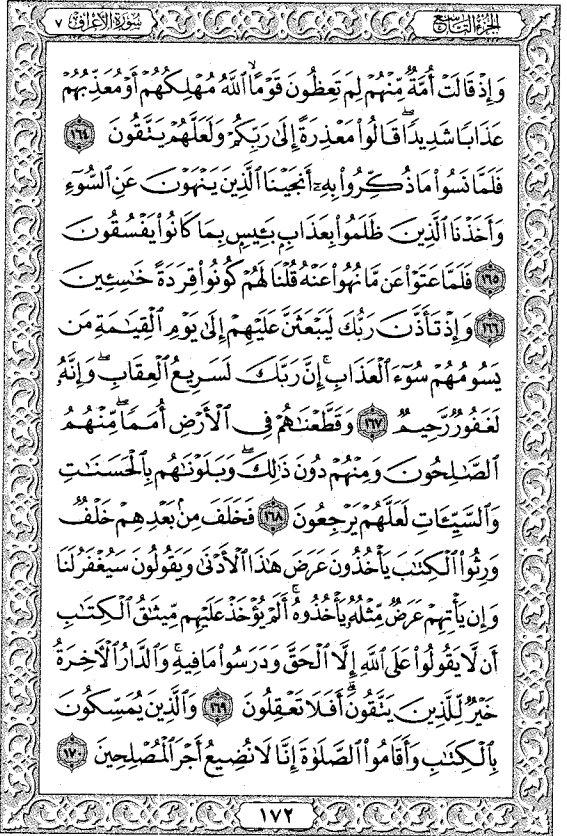 الجزء التاسع
سورة الأعراف ٧
وَإِذْ قَالَتْ أُمَّةٌ مِّنْهُمْ لِمَ تَعِظُونَ قَوْمًا ۙ اللَّهُ مُهْلِكُهُمْ أَوْ مُعَذِّبُهُمْ
عَذَابًا شَدِيدًا ۖ قَالُوا۟ مَعْذِرَةً إِلَىٰ رَبِّكُمْ وَلَعَلَّهُمْ يَتَّقُونَ ١٦٤
فَلَمَّا نَسُوا۟ مَا ذُكِّرُوا۟ بِهِۦٓ أَنجَيْنَا ٱلَّذِينَ يَنْهَوْنَ عَنِ ٱلسُّوٓءِ
وَأَخَذْنَا ٱلَّذِينَ ظَلَمُوا۟ بِعَذَابٍۭ بَـِٔيسٍۭ بِمَا كَانُوا۟ يَفْسُقُونَ
١٦٥ فَلَمَّا عَتَوْا۟ عَن مَّا نُهُوا۟ عَنْهُ قُلْنَا لَهُمْ كُونُوا۟ قِرَدَةً خَـٰسِـِٔينَ
١٦٦ وَإِذْ تَأَذَّنَ رَبُّكَ لَيَبْعَثَنَّ عَلَيْهِمْ إِلَىٰ يَوْمِ ٱلْقِيَـٰمَةِ مَن
يَسُومُهُمْ سُوٓءَ ٱلْعَذَابِ ۗ إِنَّ رَبَّكَ لَسَرِيعُ ٱلْعِقَابِ ۖ وَإِنَّهُۥ
لَغَفُورٌ رَّحِيمٌ ١٦٧ وَقَطَّعْنَـٰهُمْ فِى ٱلْأَرْضِ أُمَمًا ۖ مِّنْهُمُ
ٱلصَّـٰلِحُونَ وَمِنْهُمْ دُونَ ذَٰلِكَ ۖ وَبَلَوْنَـٰهُم بِٱلْحَسَنَـٰتِ
وَٱلسَّيِّـَٔاتِ لَعَلَّهُمْ يَرْجِعُونَ ١٦٨ فَخَلَفَ مِنۢ بَعْدِهِمْ خَلْفٌ
وَرِثُوا۟ ٱلْكِتَـٰبَ يَأْخُذُونَ عَرَضَ هَـٰذَا ٱلْأَدْنَىٰ وَيَقُولُونَ سَيُغْفَرُ لَنَا
وَإِن يَأْتِهِمْ عَرَضٌ مِّثْلُهُۥ يَأْخُذُوهُ ۚ أَلَمْ يُؤْخَذْ عَلَيْهِم مِّيثَـٰقُ ٱلْكِتَـٰبِ
أَن لَّا يَقُولُوا۟ عَلَى ٱللَّهِ إِلَّا ٱلْحَقَّ وَدَرَسُوا۟ مَا فِيهِ ۗ وَٱلدَّارُ ٱلْـَٔاخِرَةُ
خَيْرٌ لِّلَّذِينَ يَتَّقُونَ ۗ أَفَلَا تَعْقِلُونَ ١٦٩ وَٱلَّذِينَ يُمَسِّكُونَ
بِٱلْكِتَـٰبِ وَأَقَامُوا۟ ٱلصَّلَوٰةَ إِنَّا لَا نُضِيعُ أَجْرَ ٱلْمُصْلِحِينَ ١٧٠
١٧٢